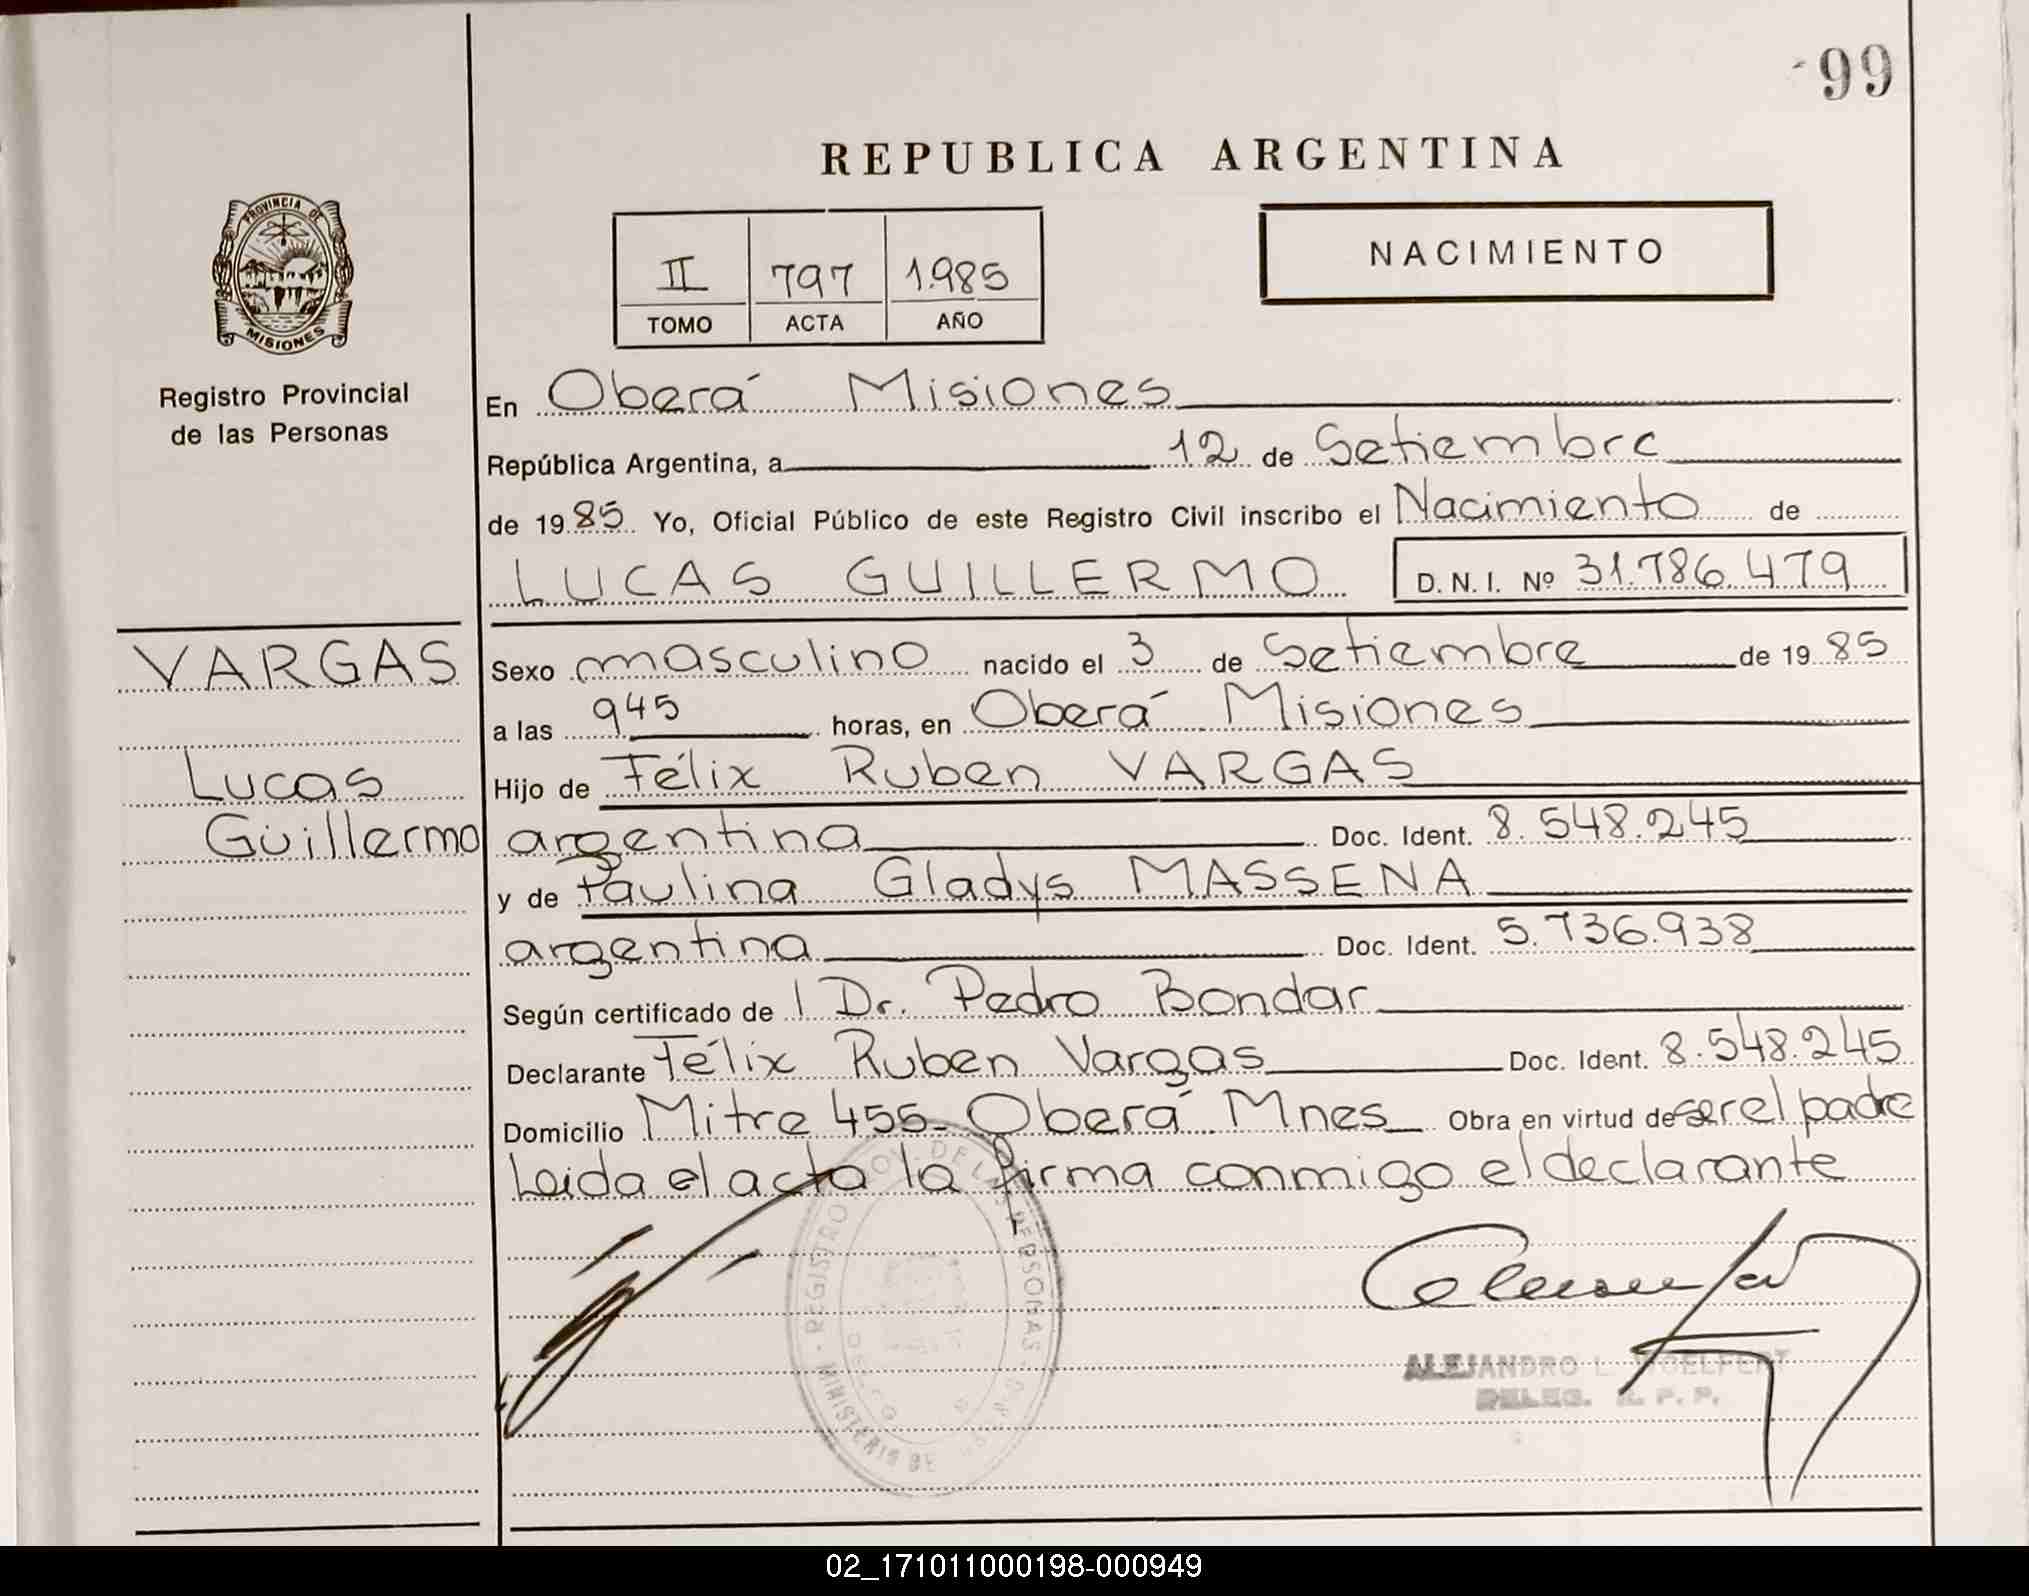 99
REPUBLICA ARGENTINA
PROVINCIA DE
MISIONES
Registro Provincial
de las Personas
II 797 1.985
TOMO ACTA AÑO
NACIMIENTO
En Oberá Misiones
República Argentina, a 12 de Setiembre
de 1985 Yo, Oficial Público de este Registro Civil inscribo el Nacimiento de
LUCAS GUILLERMO D. N. I. Nº 31.786.479
VARGAS
Lucas
Guillermo
Sexo masculino nacido el 3 de Setiembre de 1985
a las 9.45 horas, en Oberá Misiones
Hijo de Félix Ruben VARGAS
argentina Doc. Ident. 8.548.245
y de Paulina Gladys MASSENA
argentina Doc. Ident. 5.736.938
Según certificado de l Dr. Pedro Bondar
Declarante Félix Ruben Vargas Doc. Ident. 8.548.245
Domicilio Mitre 455- Oberá Mnes Obra en virtud de ser el padre
Leida el acta la firma conmigo el declarante
REGISTRO PROV. DE LAS PERSONAS
MINISTERIO DE
ALEJANDRO L. WOELFERT
DELEG. R. P. P.
02_171011000198-000949